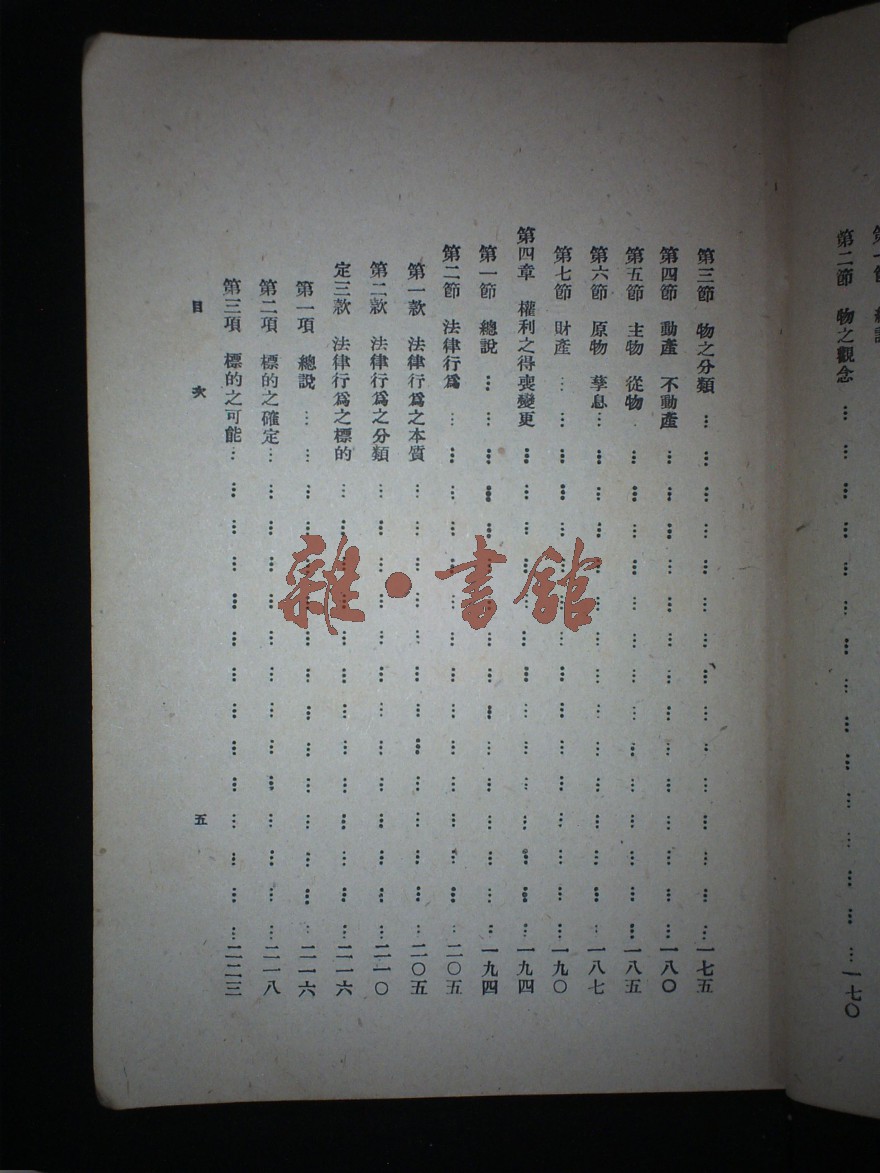 第二節 物之觀念 … … … … … … … … … … … … … … … …一七〇
第三節 物之分類 … … … … … … … … … … … … … … …一七五
第四節 動產 不動產 … … … … … … … … … … … … … …一八〇
第五節 主物 從物 … … … … … … … … … … … … … …一八五
第六節 原物 孳息… … … … … … … … … … … … … … …一八七
第七節 財產 … … … … … … … … … … … … … … … …一九〇
第四章 權利之得喪變更 … … … … … … … … … … … … … …一九四
第一節 總說 … … … … … … … … … … … … … … … …一九四
第二節 法律行為 … … … … … … … … … … … … … … …二〇五
第一款 法律行為之本質 … … … … … … … … … … … … …二〇五
第二款 法律行為之分類 … … … … … … … … … … … … …二一〇
定三款 法律行為之標的 … … … … … … … … … … … … …二一六
第一項 總說 … … … … … … … … … … … … … … …二一六
第二項 標的之確定… … … … … … … … … … … … … …二一八
第三項 標的之可能… … … … … … … … … … … … … …二二三
目 次 五
雜·書館